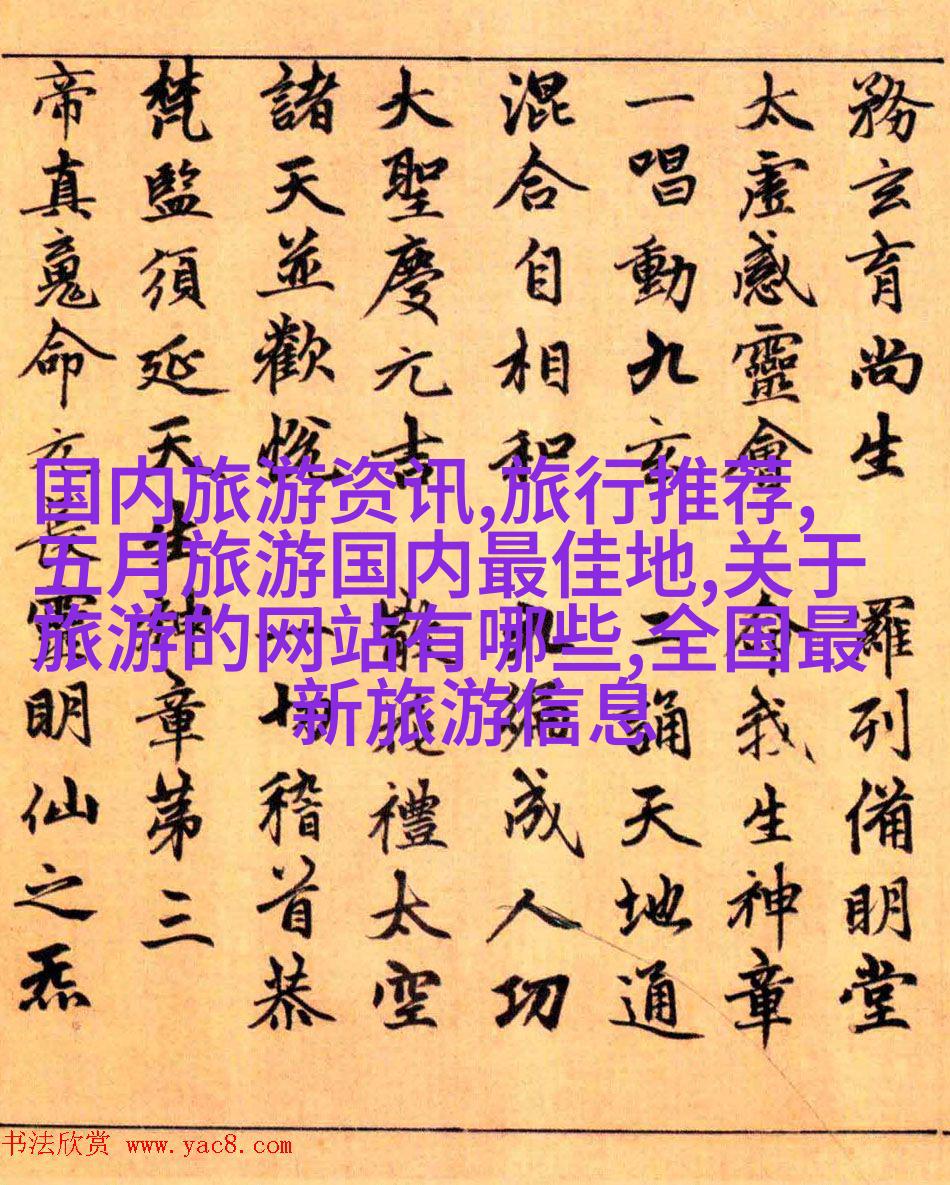 務玄育尚生 羅列備明堂
太虛感靈會 命我生神章
一唱動九玄 二誦天地通
混合自相和 九遍成人功
大聖慶元吉 散花禮太空
諸天並歡悅 一切稽首恭
梵監須延天生神章第三
帝真䰟命元長靈明仙之炁
国内旅游资讯,旅行推荐,
五月旅游国内最佳地,关于
旅游的网站有哪些,全国最
新旅游信息
书法欣赏 www.yac8.com